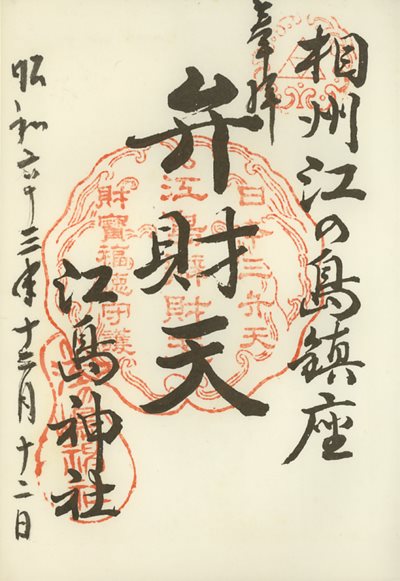 奉拝
相州江の島鎮座
弁財天
江島神社
昭和六十三年十二月十二日
日本三弁天
江島辨財天
財寳福徳守護